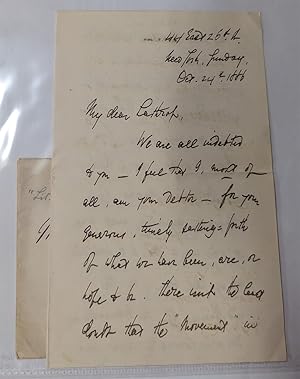 East 26th St.
New York, Sunday,
Oct. 24th 1886
My dear Lathrop,
We are all indebted
to you — I feel that I, most of
all, am your debtor — for your
generous, timely setting-forth
of what we have been, are, or
hope to be. There isn't the least
doubt that the "Movement" in